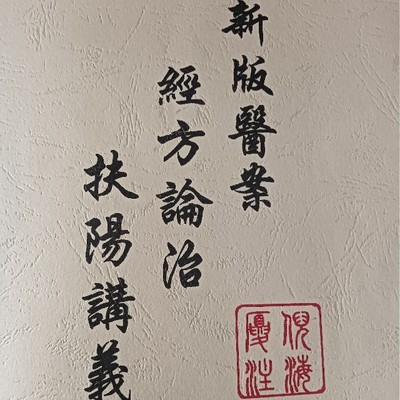 新版醫案
經方論治
扶陽講義
倪海
廈注